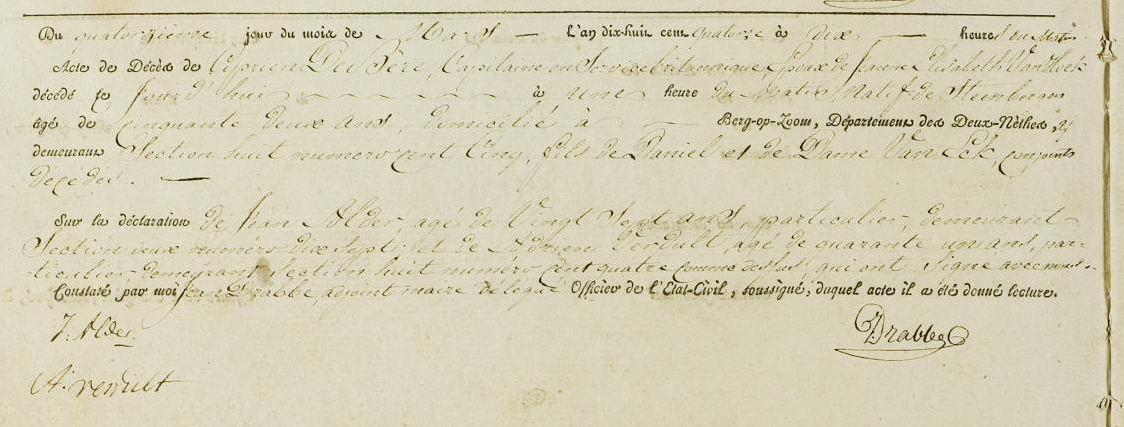 Du quatorzieme jour du mois de Mars — l'an dix-huit cent quatorze à dix — heures du Matin
Acte de Décès de Cyprien Des Père, Capitaine en Service britannique, Epoux de Jeanne Elisabeth Van
décédé ce jour d'hui à une heure du matin, Natif de Steenbergen
âgé de cinquante deux ans, domicilié à Berg-op-Zoom, Département des Deux-Nèthes, et
demeurant Section huit numero cent Cinq, fils de Daniel et de Dame Van Eck, conjoints
décédés. —
Sur la déclaration de Jean Alder, agé de Vingt Sept ans, particulier, demeurant
Section deux numéro dix sept; et de Adrien Verdult, agé de quarante un ans, par-
ticulier demeurant Section huit numéro cent quatre comme dessus, qui ont signé avec
Constaté par moi Jean Drabbe, adjoint maire délégué Officier de l'Etat-Civil, soussigné, duquel acte il a été donné lecture.
J. Alder.
Drabbe
A. verdult